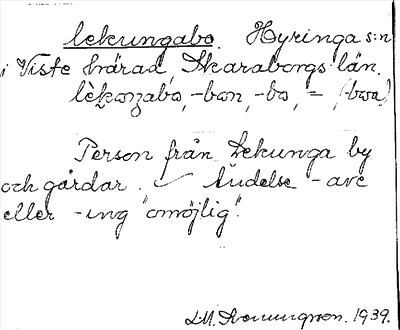 lekungabo. Hyringa s:n
i Viste härad, Skaraborgs län.
lèkoŋabo, -bon, -bo, = (-boa)
Person från Lekunga by
och gårdar. Ändelse -are
eller -ing "omöjlig".
1939.